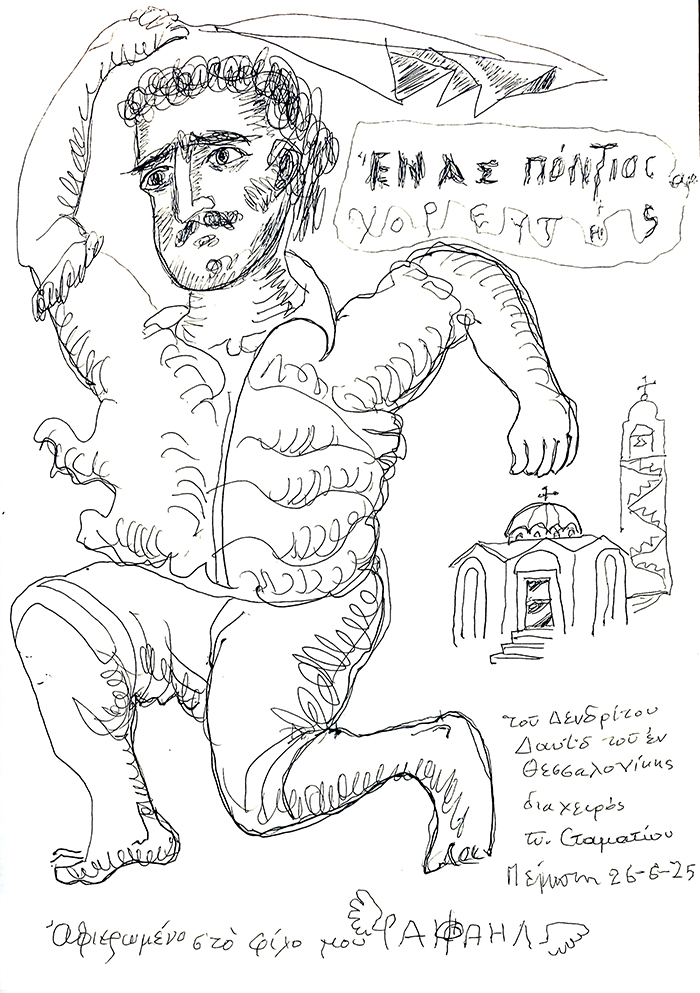 ἝΝΑΣ ΠΌΝΤΙΟΣ
ΧΟΡΕΥΤΗς
τοῦ Δενδρίτου
Δαυῒδ τοῦ ἐν
Θεσσαλονίκης
δια χειρός
Σταματίου
Πέμπτη 26-6-25
Ἀφιερωμένο στὸ φίλο μου ΡΑΦΑΗΛ